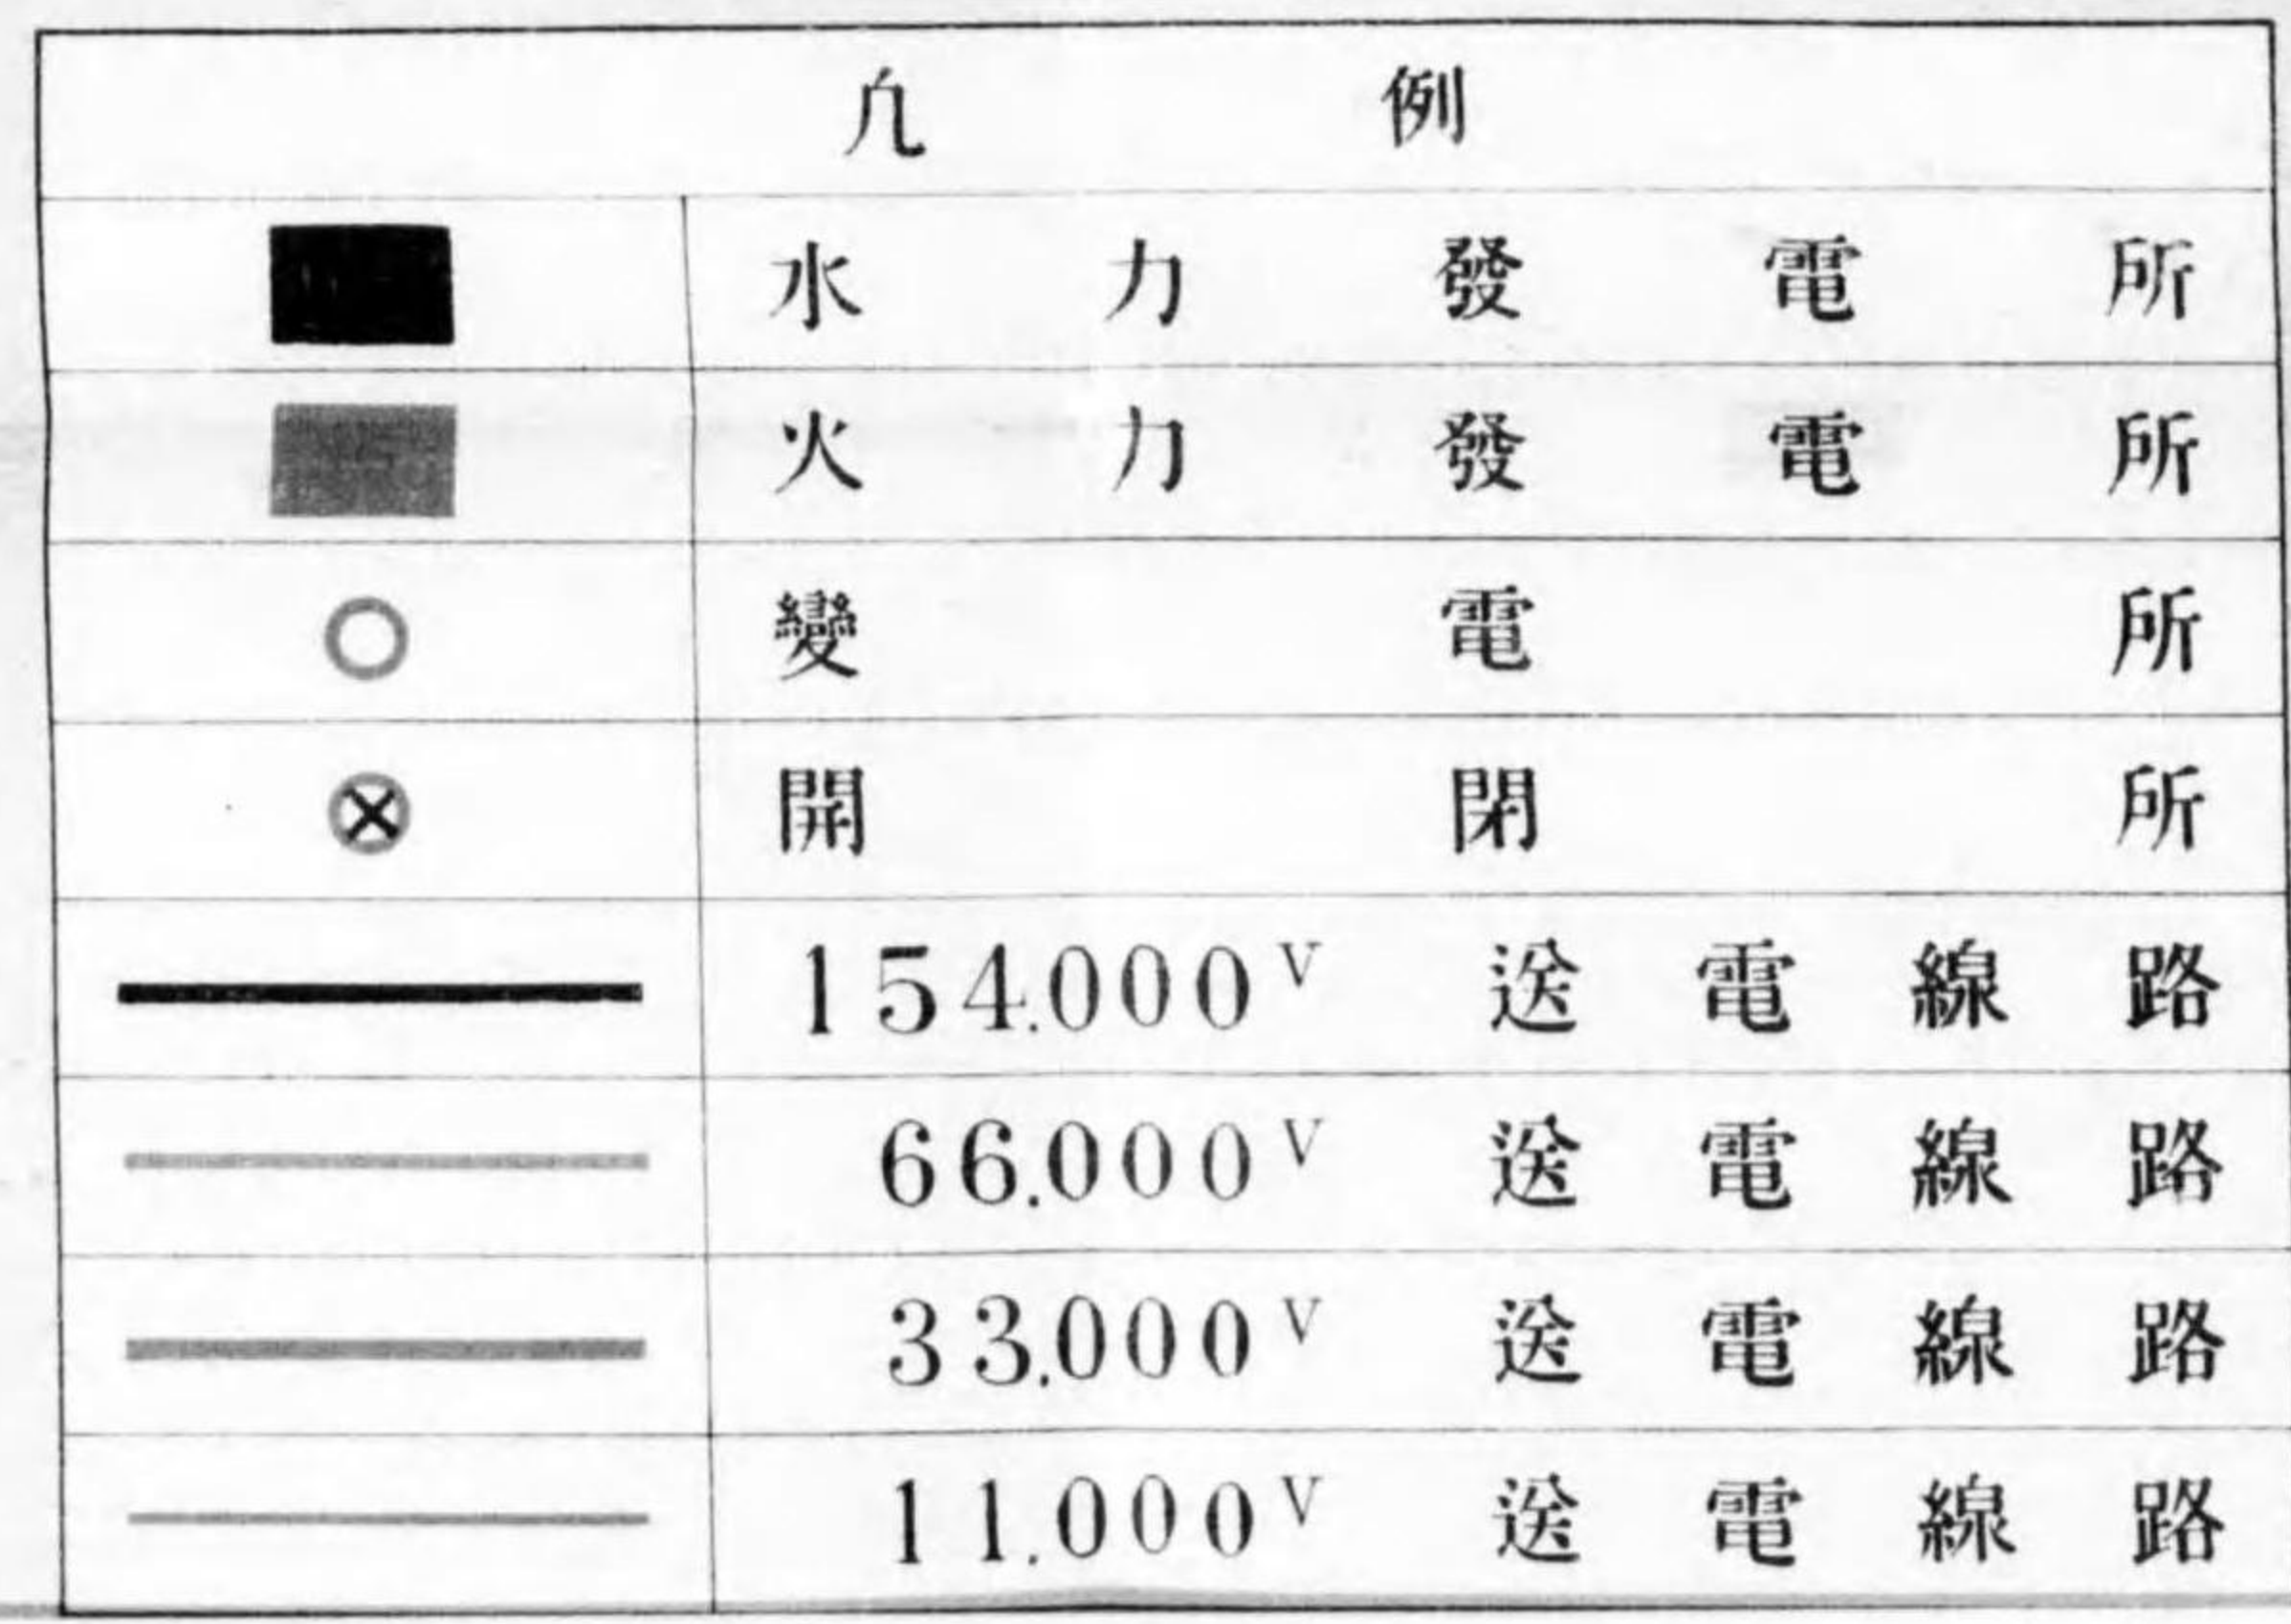 凢例
水力發電所
火力發電所
變電所
開閉所
154.000V 送電線路
66.000V 送電線路
33.000V 送電線路
11.000V 送電線路